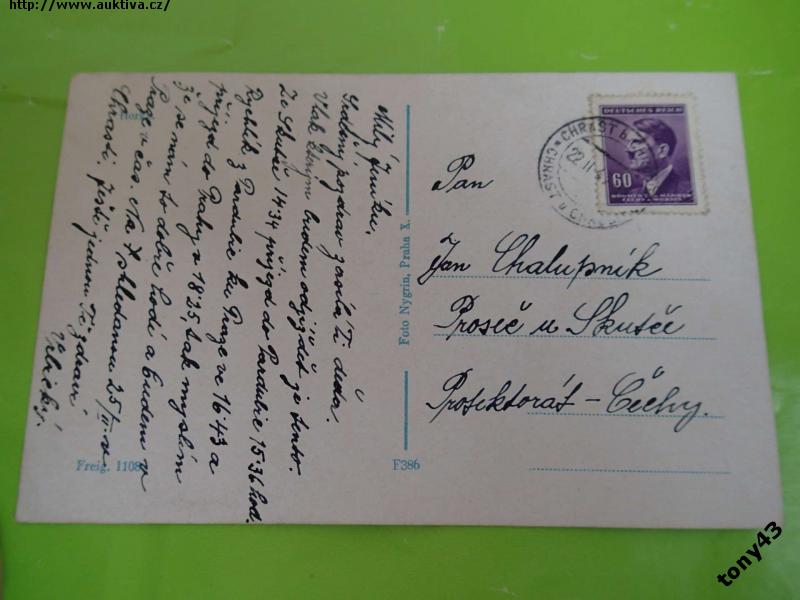 http://www.auktiva.cz/
Milý Jeníku,
Srdečný pozdrav zasílá Ti děda.
Vlak kterým budem odjíždět je tento.
Ze Skutče 14·34 příjezd do Pardubic 15·36 hod.
Rychlík z Pardubic ku Praze ve 16·43 a
příjezd do Prahy a 18·25, tak myslím
že se nám to dobře hodí a budem v
Praze v čas. Na shledanou 25/II v
Chrasti. Ještě jednou Tě zdraví
Freig. 1108
F386
Foto Nygrin, Praha X.
DEUTSCHES REICH
60
BÖHMEN UND MÄHREN
ČECHY A MORAVA
CHRAST b.
22.II.
Pan
Jan Chalupník
Proseč u Skutče
Protektorát – Čechy.
tony43